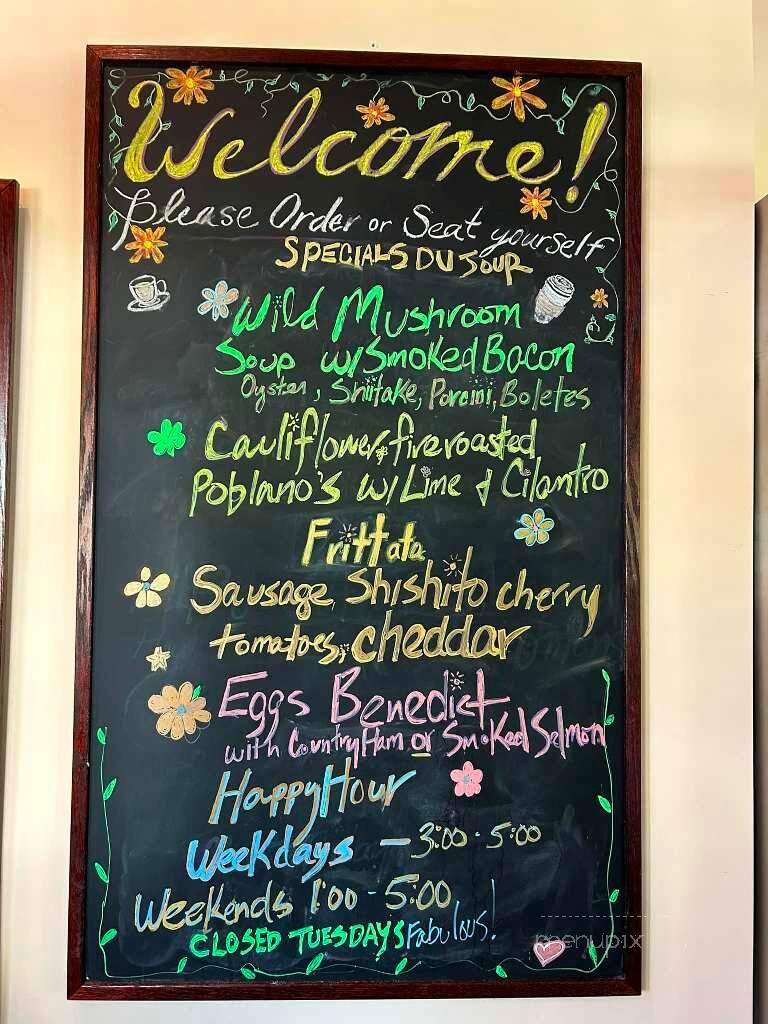 Welcome!
Please Order or Seat yourself
SPECIALS DU JOUR
Wild Mushroom
Soup w/Smoked Bacon
Oyster, Shiitake, Porcini, Boletes
Cauliflower, fire roasted
Poblano's w/Lime & Cilantro
Frittata
Sausage, Shishito cherry
tomatoes, cheddar
Eggs Benedict
with Country Ham or Smoked Salmon
Happy Hour
Weekdays - 3:00 - 5:00
Weekends 1:00 - 5:00
CLOSED TUESDAYS Fabulous!
menupix